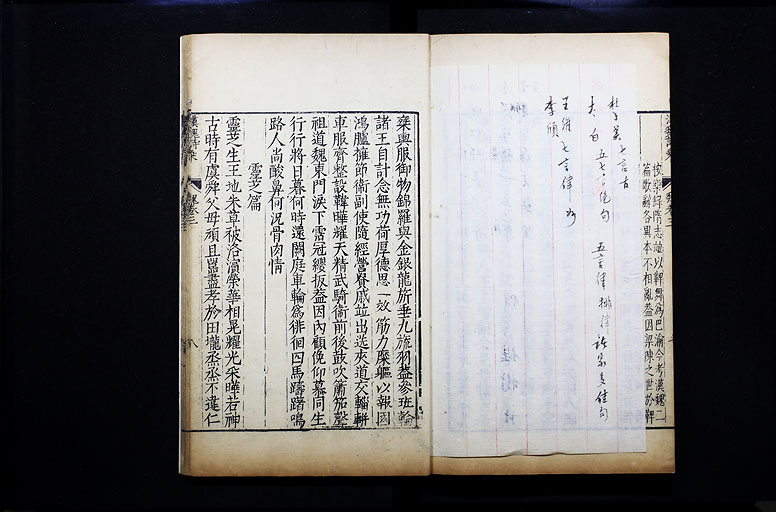 按樂府隋志竝以鞞舞爲巴渝今考漢魏二
篇歌辭各異本不相亂蓋因梁陳之世於鞞
杜子美七言古
太白五七言绝句 五言律排律 諸家多佳句
王維七言律
李頎
乘輿服御物錦羅與金銀龍旂垂九旒羽蓋參班輪
諸王自計念無功荷厚德思一效筋力糜軀以報國
鴻臚擁節衞副使隨經營貴戚竝出送夾道交輜軿
車服齊整設韡曄耀天精武騎衞前後鼓吹簫笳聲
祖道魏東門淚下霑冠纓扳蓋因內顧俛仰慕同生
行行將日暮何時還闕庭車輪爲徘徊四馬躊躇鳴
路人尚酸鼻何況骨肉情
靈芝篇
靈芝生王地朱草被洛濱榮華相晃耀光采曄若神
古時有虞舜父母頑且嚚盡孝於田壠烝烝不違仁